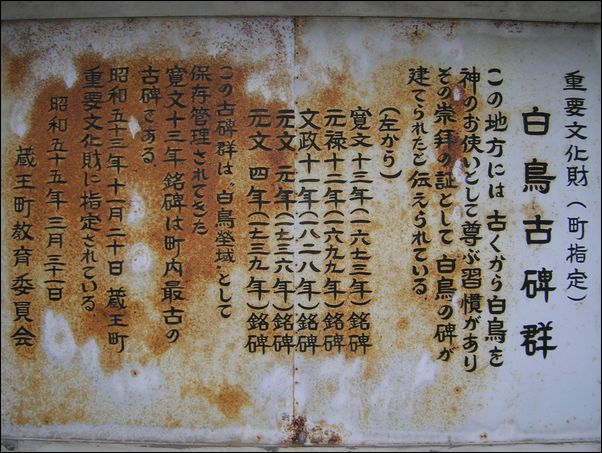 重要文化財(町指定)
白鳥古碑群
この地方には 古くから白鳥を
神のお使いとして尊ぶ習慣があり
その崇拝の証として 白鳥の碑が
建てられたと伝えられている
(左から)
寛文十三年(一六七三年)銘碑
元禄十二年(一六九九年)銘碑
文政十一年(一八二八年)銘碑
元文 元年(一七三六年)銘碑
元文 四年(一七三九年)銘碑
この古碑群は〝白鳥塋域〟として
保存管理されてきた
寛文十三年 銘碑は町内最古の
古碑である
昭和五十三年十一月二十日 蔵王町
重要文化財に指定されている
昭和五十五年 三月 三十一日
蔵王町教育委員会